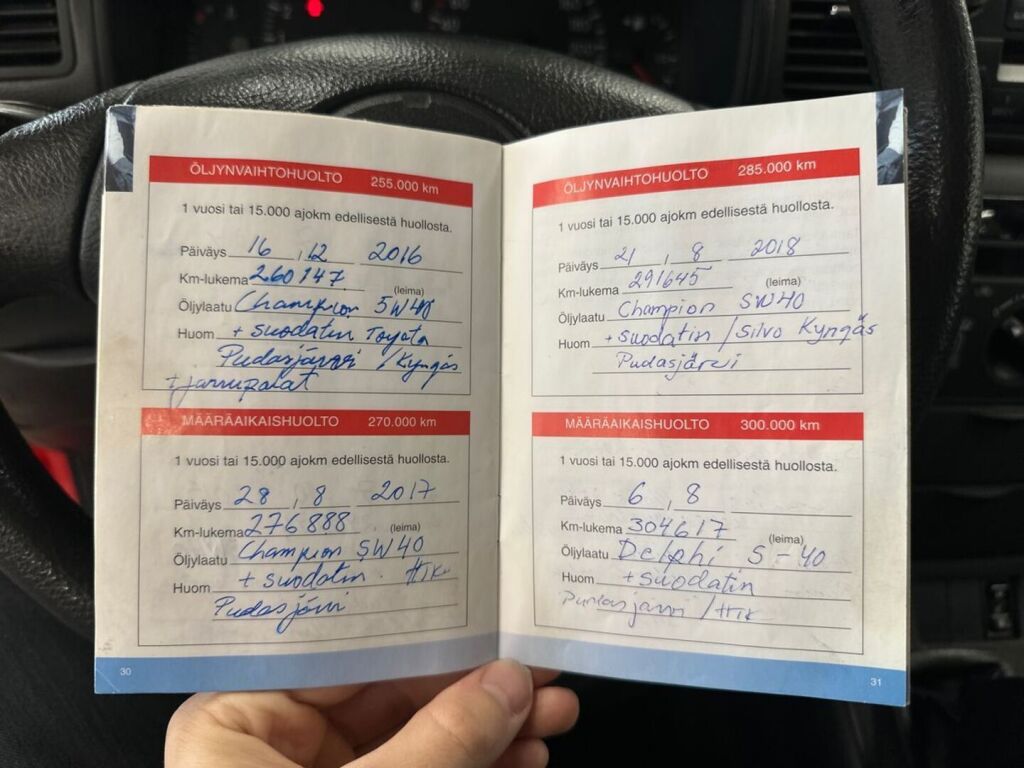 ÖLJYNVAIHTOHUOLTO 255.000 km
1 vuosi tai 15.000 ajokm edellisestä huollosta.
Päiväys 16 , 12 2016
Km-lukema 260147
(leima)
Öljylaatu Champion 5W40
Huom + suodatin Toyota
Pudasjärvi / Kyngäs
+ jarrupalat
MÄÄRÄAIKAISHUOLTO 270.000 km
1 vuosi tai 15.000 ajokm edellisestä huollosta.
Päiväys 28 , 8 2017
Km-lukema 276888
(leima)
Öljylaatu Champion 5W40
Huom + suodatin.
Pudasjärvi
30
ÖLJYNVAIHTOHUOLTO 285.000 km
1 vuosi tai 15.000 ajokm edellisestä huollosta.
Päiväys 21 , 8 2018
Km-lukema 291645
(leima)
Öljylaatu Champion 5W40
Huom + suodatin / Silvo Kyngäs
Pudasjärvi
MÄÄRÄAIKAISHUOLTO 300.000 km
1 vuosi tai 15.000 ajokm edellisestä huollosta.
Päiväys 6 , 8
Km-lukema 304617
(leima)
Öljylaatu Delphi 5-40
Huom + suodatin
Pudasjärvi /
31